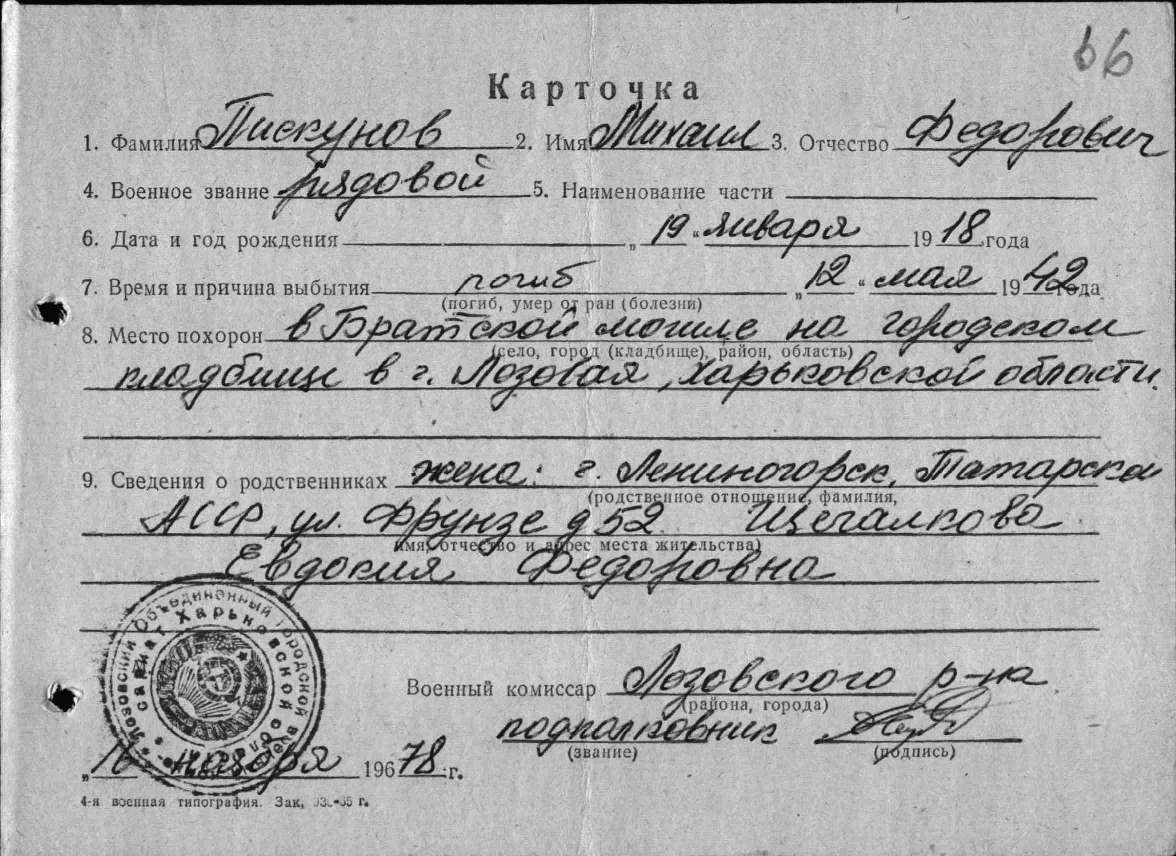 66
Карточка
1. Фамилия Пискунов 2. Имя Михаил 3. Отчество Федорович
4. Военное звание рядовой 5. Наименование части
6. Дата и год рождения „ 19 “ января 1918 года
7. Время и причина выбытия погиб „ 12 “ мая 1942 года
(погиб, умер от ран (болезни)
8. Место похорон в Братской могиле на городском
(село, город (кладбище), район, область)
кладбище в г. Лозовая, Харьковской области.
9. Сведения о родственниках жена: г. Лениногорск, Татарской
(родственное отношение, фамилия,
АССР, ул. Фрунзе д 52 Щегалкова
имя, отчество и адрес места жительства)
Евдокия Федоровна
Лозовский Объединенный городской
Харьковской
Военный комиссар Лозовского р-на
(района, города)
подполковник
(звание) (подпись)
„16 ноября 19678 г.
4-я военная типография. Зак,